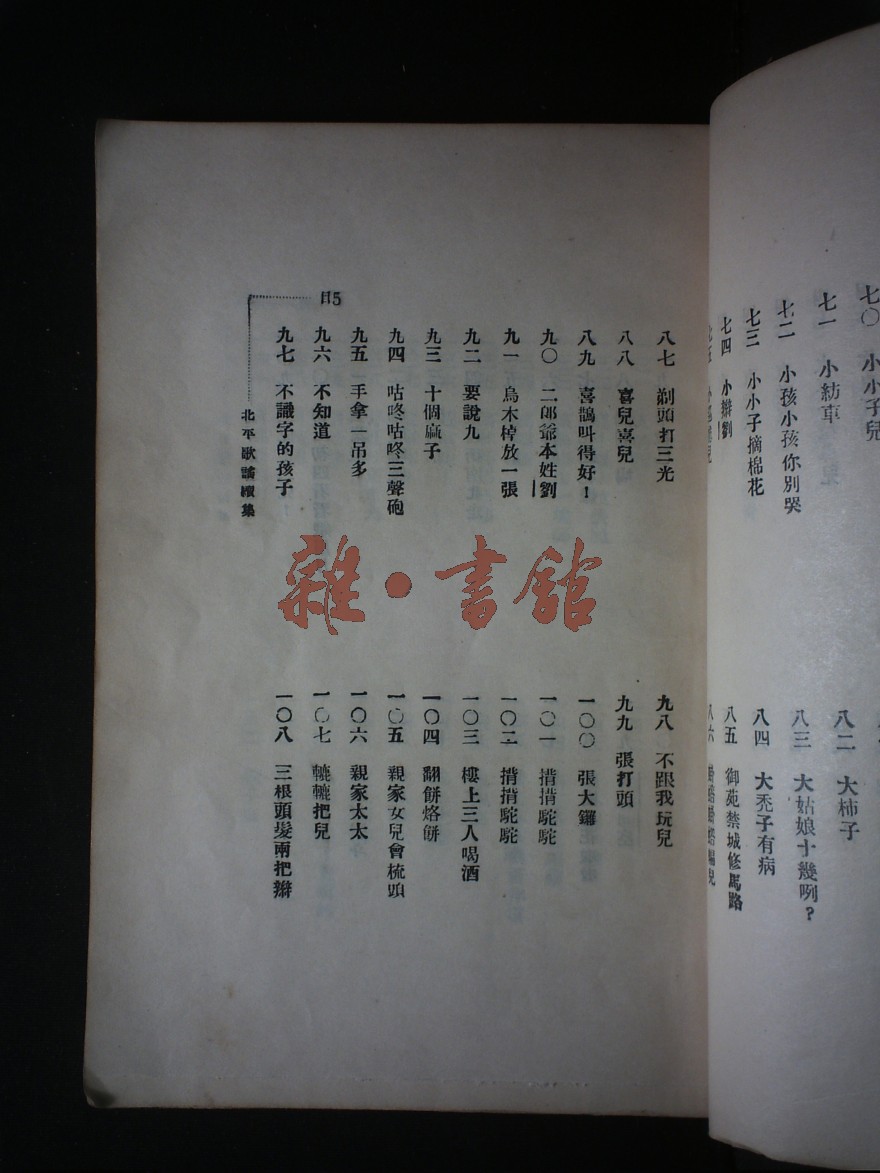 七〇 小小子兒
七一 小紡車
七二 小孩小孩你別哭
七三 小小子摘棉花
七四 小辮劉
八二 大柿子
八三 大姑娘十幾咧？
八四 大禿子有病
八五 御苑禁城修馬路
八六
目5
八七 剃頭打三光
八八 喜兒喜兒
八九 喜鵲叫得好！
九〇 二郎爺本姓劉
九一 烏木棹放一張
九二 要說九
九三 十個麻子
九四 咕咚咕咚三聲砲
九五 手拿一吊多
九六 不知道
九七 不識字的孩子
九八 不跟我玩兒
九九 張打頭
一〇〇 張大鑼
一〇一 揹揹駝駝
一〇二 揹揹駝駝
一〇三 樓上三人喝酒
一〇四 翻餅烙餅
一〇五 親家女兒會梳頭
一〇六 親家太太
一〇七 轆轆把兒
一〇八 三根頭髮兩把辮
北平歌謠續集
雜·書館